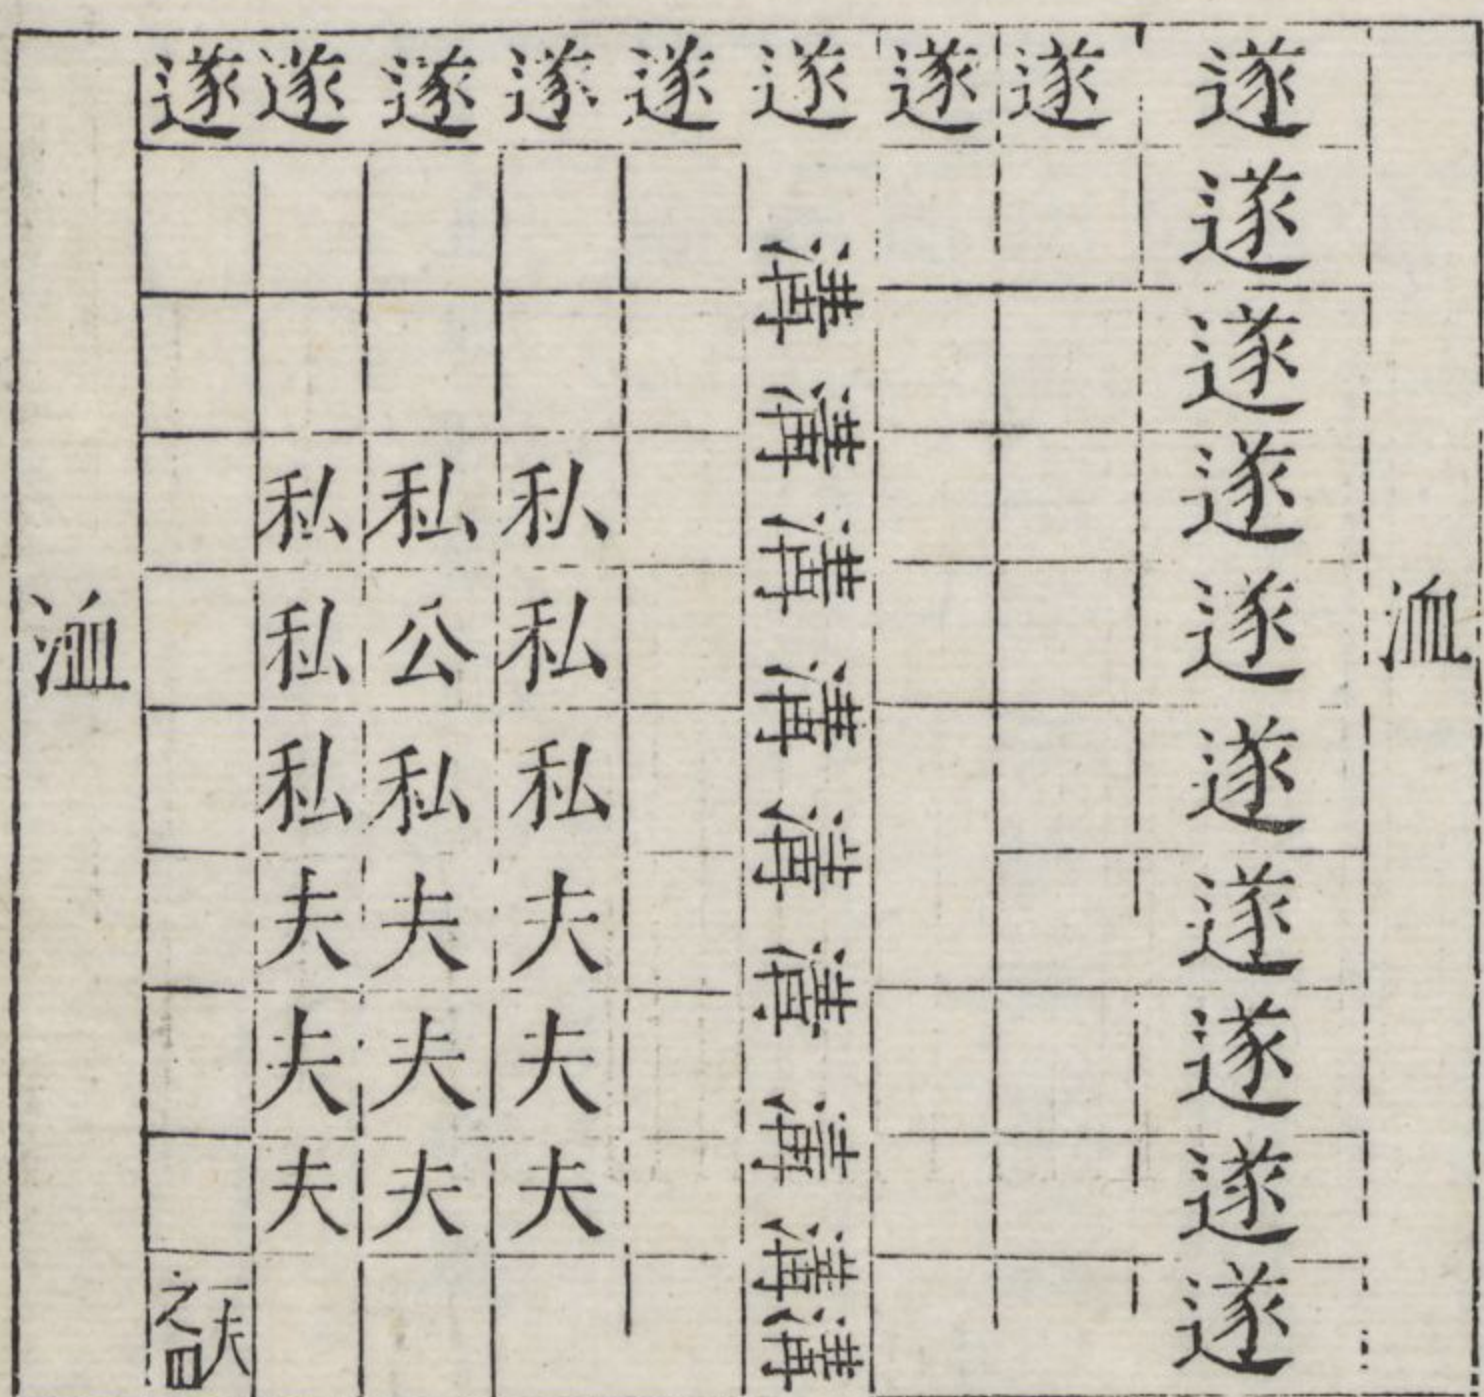 洫
遂遂遂遂遂遂遂遂遂遂
遂
遂
遂溝溝溝溝溝溝溝溝溝
遂
遂私私私夫夫夫
遂私公私夫夫夫
遂私私私夫夫夫
遂
一夫
之田
洫